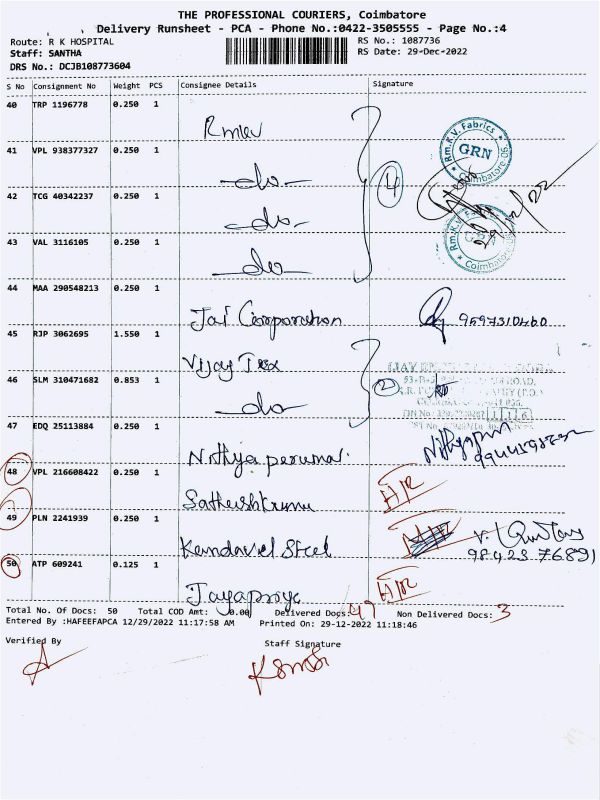 THE PROFESSIONAL COURIERS, Coimbatore
Delivery Runsheet - PCA - Phone No.:0422-3505555 - Page No.:4
Route: R K HOSPITAL RS No.: 1087736
Staff: SANTHA RS Date: 29-Dec-2022
DRS No.: DCJB108773604
S No Consignment No Weight PCS Consignee Details Signature
40 TRP 1196778 0.250 1
Rm.K.V. Fabrics GRN Coimbatore
41 VPL 938377327 0.250 1 -do-
4
42 TCG 40342237 0.250 1 -do-
Rm.K.V. Fabrics GRN Coimbatore
43 VAL 3116105 0.250 1 -do-
44 MAA 290548213 0.250 1 Jai Corporation 9597310460
45 RJP 3062695 1.550 1 Vijay Tex
46 SLM 310471682 0.853 1 -do- 2
47 EDQ 25113884 0.250 1 Nithya perumal
48 VPL 216608422 0.250 1 Sathishkumar
49 PLN 2241939 0.250 1 Kandavel Steel 98423 76891
50 ATP 609241 0.125 1 Jayapriya
Total No. Of Docs: 50 Total COD Amt: 0.00 Delivered Docs: 47 Non Delivered Docs: 3
Entered By :HAFEEFAPCA 12/29/2022 11:17:58 AM Printed On: 29-12-2022 11:18:46
Verified By Staff Signature